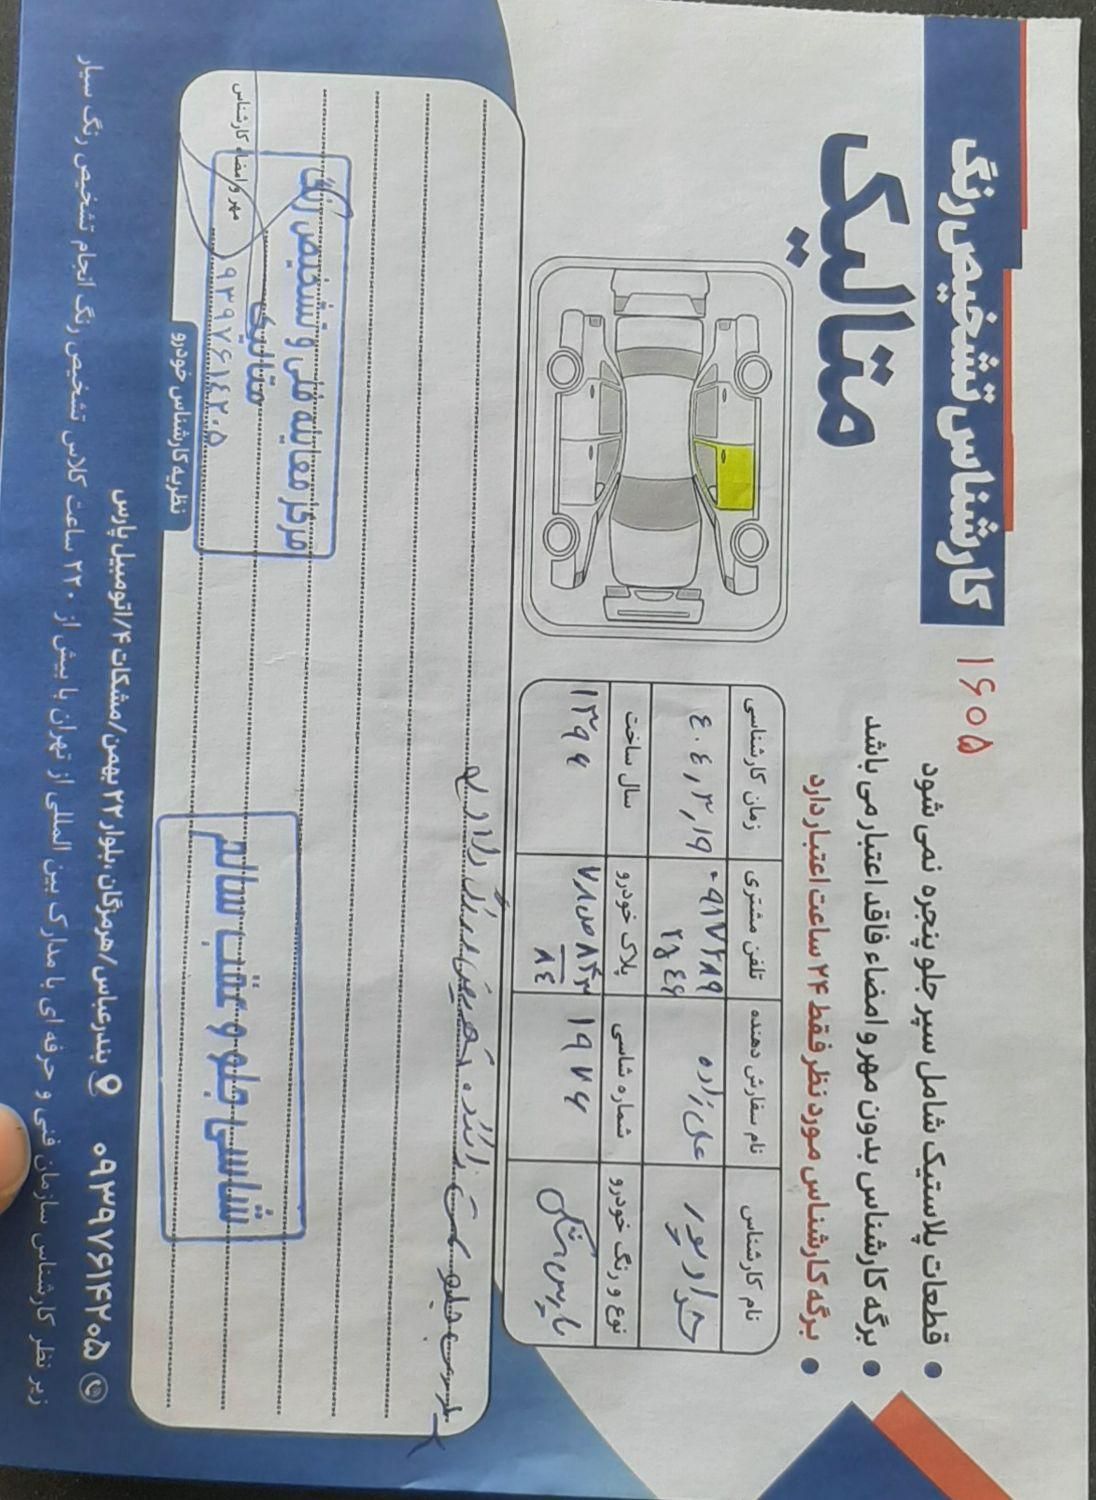 کارشناس تشخیص رنگ
متالیک
۱۶۰۵
• قطعات پلاستیک شامل سپر جلو پنجره نمی شود
• برگه کارشناس بدون مهر و امضاء فاقد اعتبار می باشد
• برگه کارشناس مورد نظر فقط ۲۴ ساعت اعتبار دارد
نام کارشناس نام سفارش دهنده تلفن مشتری زمان کارشناسی
۴۰۴,۳,۱۹
نوع و رنگ خودرو شماره شاسی پلاک خودرو سال ساخت
۱۹۷۶ ۷۸ص۸۴۳ ۱۳۹۶
۸۴
درب جلو سمت راننده تعویض رنگ دارد
نظریه کارشناس خودرو
شاسی جلو و عقب سالم
مرکز معاینه فنی و تشخیص رنگ
متالیک
۰۹۳۹۷۶۱۴۲۰۵
مهر و امضاء کارشناس
۰۹۳۹۷۶۱۴۲۰۵ بندرعباس/هرمزگان،بلوار ۲۲ بهمن/مشکات ۴/اتومبیل پارس
زیر نظر کارشناس سازمان فنی و حرفه ای با مدارک بین المللی از تهران با بیش از ۲۲۰ ساعت کلاس تشخیص رنگ انجام تشخیص رنگ سیار